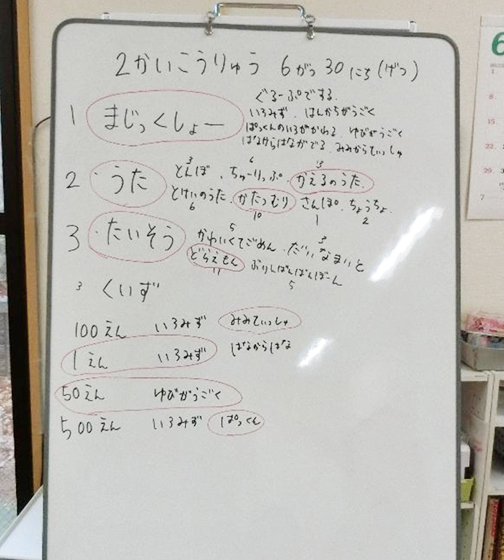 2かいこうりゅう 6がつ 30にち (げつ)
1 まじっくしょー
ぐるーぷでする.
いろみず. はんかちがうごく
ぱっくんのいろがかわる ゆびがうごく
はなからはながでる みみからてぃっしゅ
2 うた
とんぼ. ちゅーりっぷ. かえるのうた.
3 6 13
とけいのうた. かたつむり さんぽ. ちょうちょ.
6 10 1 2
3 たいそう
かわいくてごめん. だいなまいと
5 3
どらえもん ぶりしばんばんばーん
11 5
3 くいず
100えん いろみず みみてぃっしゅ
1えん いろみず はなからはな
50えん ゆびがうごく
500えん いろみず ぱっくん
6